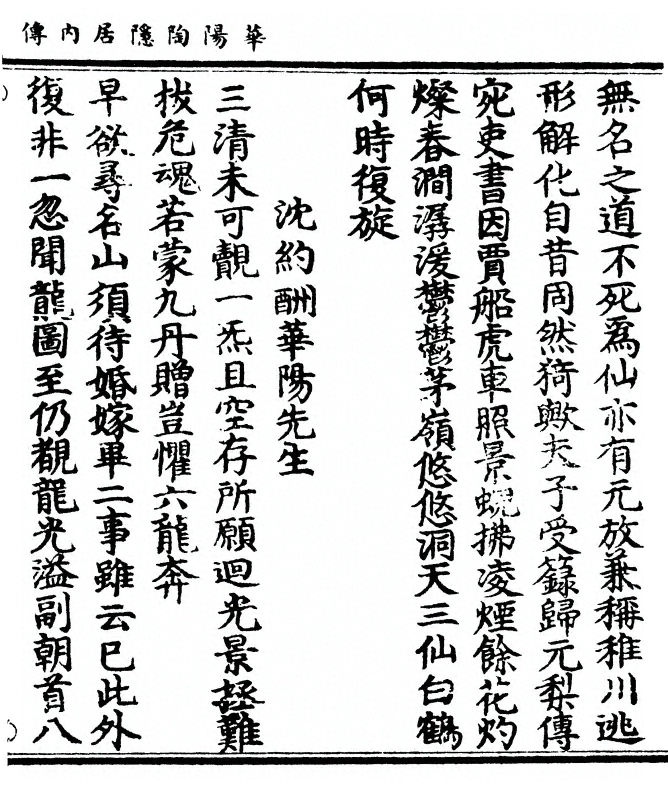 華陽陶隱居內傳
無名之道不死爲仙亦有元放兼稱稚川逃
形解化自昔固然猗歟夫子受籙歸元梨傳
宛吏書因賈船虎車照景蜺拂凌煙餘花灼
燦春澗潺湲鬱鬱茅嶺悠悠洞天三仙白鶴
何時復旋
沈約酬華陽先生
三清未可覿一炁且空存所願迴光景拯難
拔危魂若蒙九丹贈豈懼六龍奔
早欲尋名山須待婚嫁畢二事雖云已此外
復非一忽聞龍圖至仍覩龍光溢副朝首八